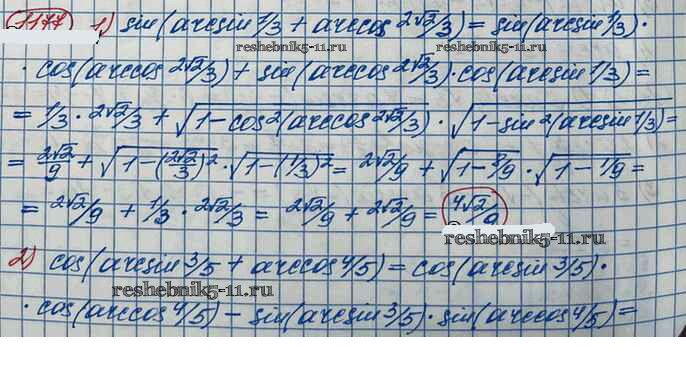 1177 1) sin(arcsin 1/3 + arccos 2√2/3) = sin(arcsin 1/3) ·
reshebnik5-11.ru
· cos(arccos 2√2/3) + sin(arccos 2√2/3) · cos(arcsin 1/3) =
= 1/3 · 2√2/3 + √1-cos²(arccos 2√2/3) · √1-sin²(arcsin 1/3) =
= 2√2/9 + √1-(2√2/3)² · √1-(1/3)² = 2√2/9 + √1-8/9 · √1-1/9 =
= 2√2/9 + 1/3 · 2√2/3 = 2√2/9 + 2√2/9 = 4√2/9
reshebnik5-11.ru
2) cos(arcsin 3/5 + arccos 4/5) = cos(arcsin 3/5) ·
reshebnik5-11.ru
· cos(arccos 4/5) - sin(arcsin 3/5) · sin(arccos 4/5) =